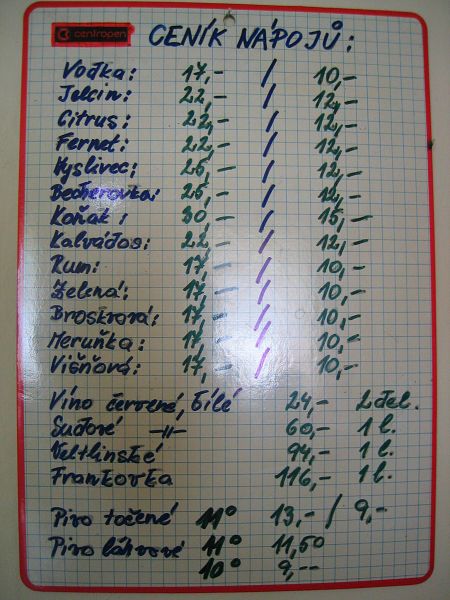 centropen CENÍK NÁPOJŮ:
Vodka: 17,- / 10,-
Jelcin: 22,- / 12,-
Citrus: 22,- / 12,-
Fernet: 22,- / 12,-
Myslivec: 26,- / 12,-
Becherovka: 26,- / 12,-
Koňak: 30,- / 15,-
Kalvádos: 22,- / 12,-
Rum: 17,- / 10,-
Zelená: 17,- / 10,-
Broskvová: 17,- / 10,-
Meruňka: 17,- / 10,-
Višňová: 17,- / 10,-
Víno červené, bílé 24,- 2 del.
Sudové -||- 60,- 1 l.
Veltlinské 94,- 1 l.
Frankovka 116,- 1 l.
Pivo točené 11° 13,- / 9,-
Pivo láhvové 11° 11,50
10° 9,--